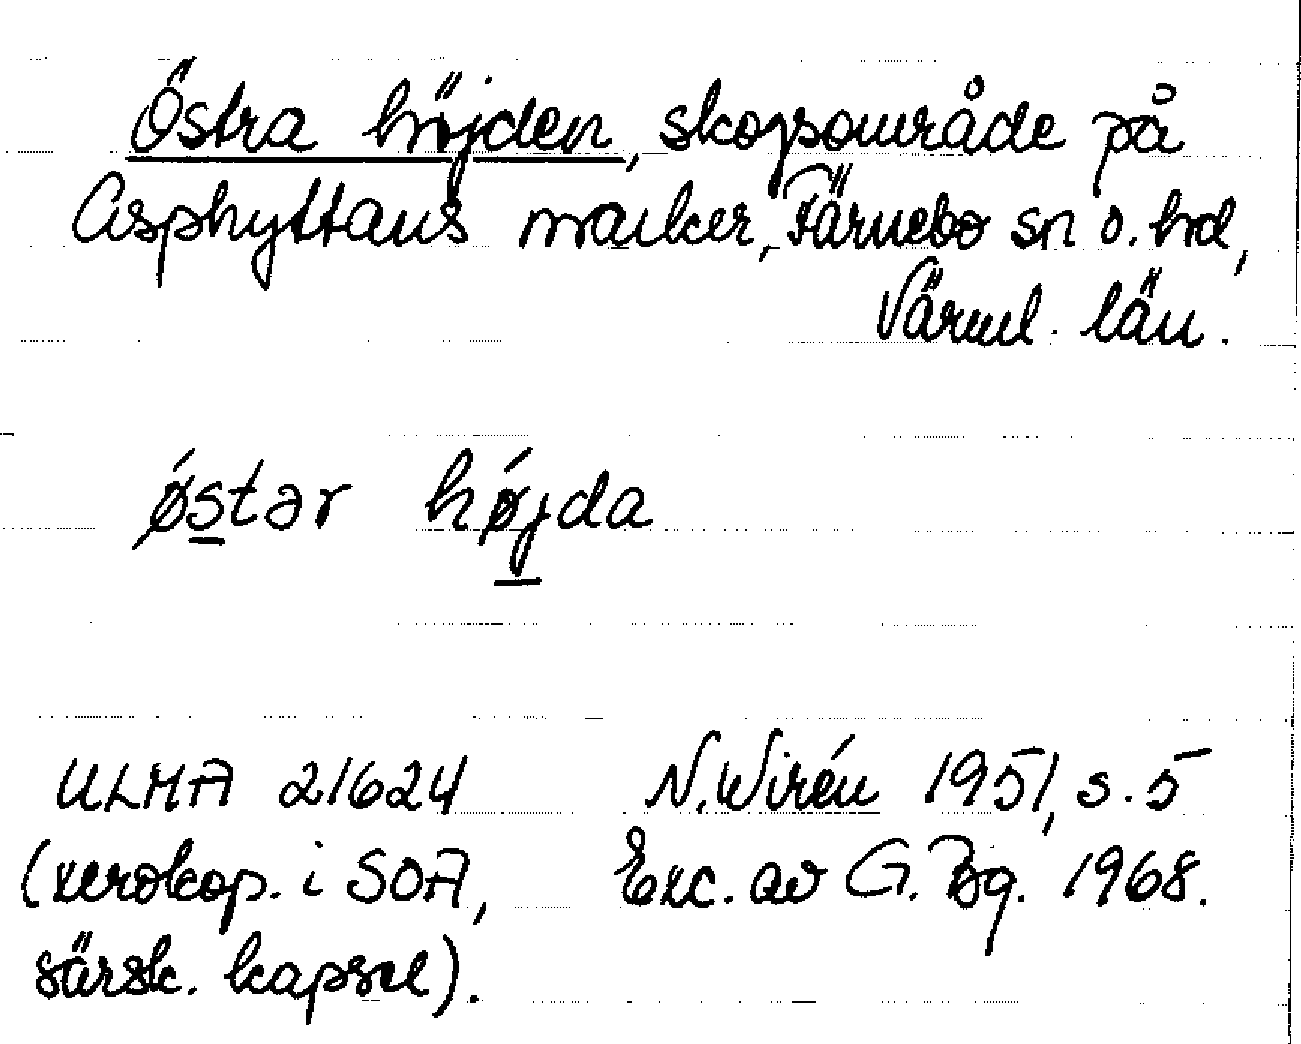 Östra höjden, skogsområde på
Asphyttans marker, Färnebo sn o. hd,
Värml. län.
østər højda
ULMA 21624 N. Wirén 1951, s. 5
(xerokop. i SOA, Exc. av G. Bg. 1968.
särsk. kapsel).